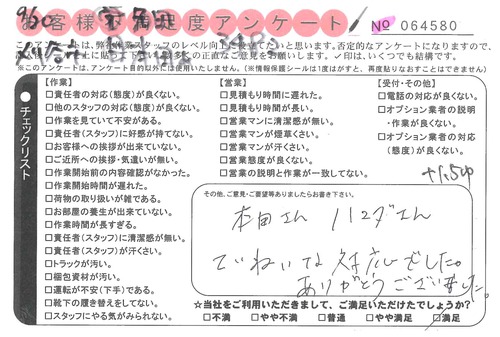 9/30
お客様ご満足度アンケート
No 064580
このアンケートは、弊社作業スタッフのレベル向上に役立てたいと思います。否定的なアンケートになりますので、
の正直なご意見をお願いします。✓印は、いくつでも結構です。
※このアンケートは、アンケート目的以外には使用いたしません。(※情報保護シールは1度はがすと、再度貼りなおすことはできません)
●チェックリスト
【作業】
□責任者の対応(態度)が良くない。
□他のスタッフの対応(態度)が良くない。
□作業を見ていて不安がある。
□責任者(スタッフ)に好感が持てない。
□お客様への挨拶が出来ていない。
□ご近所への挨拶・気遣いが無い。
□作業開始前の内容確認がなかった。
□作業開始時間が遅れた。
□荷物の取り扱いが雑である。
□お部屋の養生が出来ていない。
□作業時間が長すぎる。
□責任者(スタッフ)に清潔感が無い。
□責任者(スタッフ)が汗くさい。
□トラックが汚い。
□梱包資材が汚い。
□運転が不安(下手)である。
□靴下の履き替えをしてない。
□スタッフにやる気がみられない。
【営業】
□見積もり時間に遅れた。
□見積もり時間が長い。
□営業マンに清潔感が無い。
□営業マンが煙草くさい。
□営業マンが汗くさい。
□営業態度が良くない。
□営業の説明と作業が一致してない。
【受付・その他】
□電話の対応が良くない。
□オプション業者の説明
・作業が良くない。
□オプション業者の対応
(態度)が良くない。
その他、ご意見・ご要望等ありましたらお書き下さい。
本田さん ハマダさん
ていねいな対応でした。
ありがとうございました。
☆当社をご利用いただきまして、ご満足いただけたでしょうか?
□不満 □やや不満 □普通 □やや満足 □満足